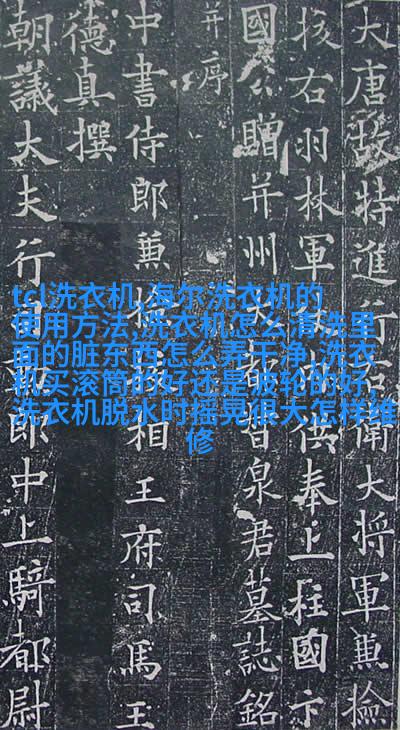 大唐故特進行右衛大將軍兼檢
校右羽林軍仗內供奉上柱國卞
國公贈并州大都督泉君墓誌銘
并序
中書侍郎兼檢校相王府司馬王
德真撰
朝議大夫行司勳郎中上騎都尉
tcl洗衣机,海尔洗衣机的
使用方法,洗衣机怎么清洗里
面的脏东西怎么弄干净,洗衣
机买滚筒的好还是波轮的好,
洗衣机脱水时摇晃很大怎样维
修